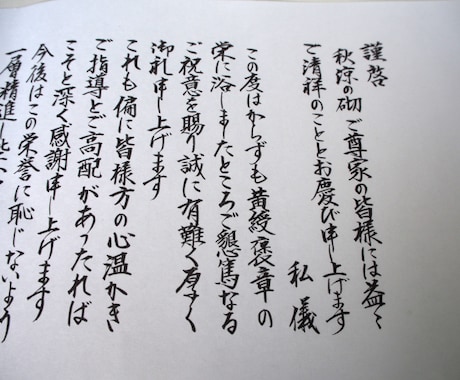 謹啓
秋涼の砌 ご尊家の皆様には益々
ご清祥のこととお慶び申し上げます
私儀
この度はからずも黄綬褒章の
栄に浴しましたところご懇篤なる
ご祝意を賜り誠に有難く厚く
御礼申し上げます
これも偏に皆様方の心温かき
ご指導とご高配があったれば
こそと深く感謝申し上げます
今後はこの栄誉に恥じないよう
一層精進し